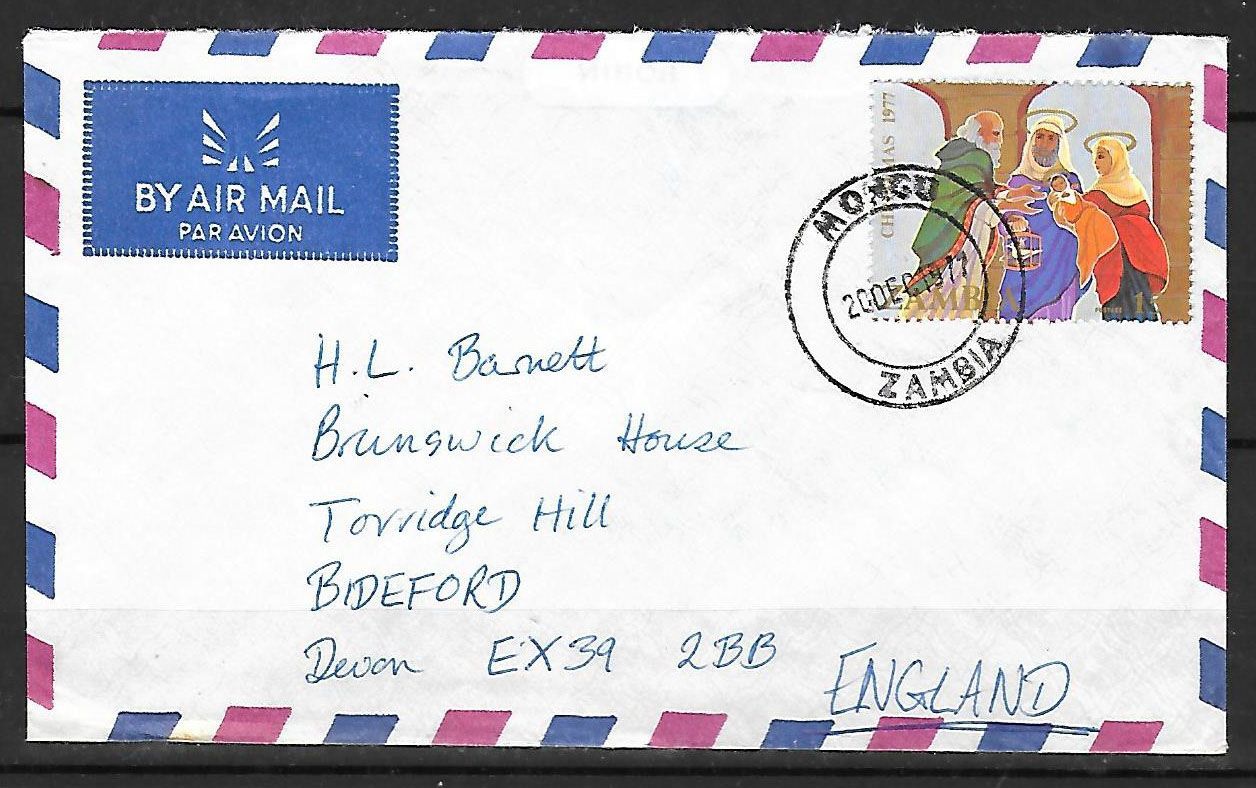 BY AIR MAIL
PAR AVION
CHRISTMAS 1977
MONGU
20 DEC 1977
ZAMBIA
ZAMBIA
H.L. Barnett
Brunswick House
Torridge Hill
BIDEFORD
Devon EX39 2BB
ENGLAND